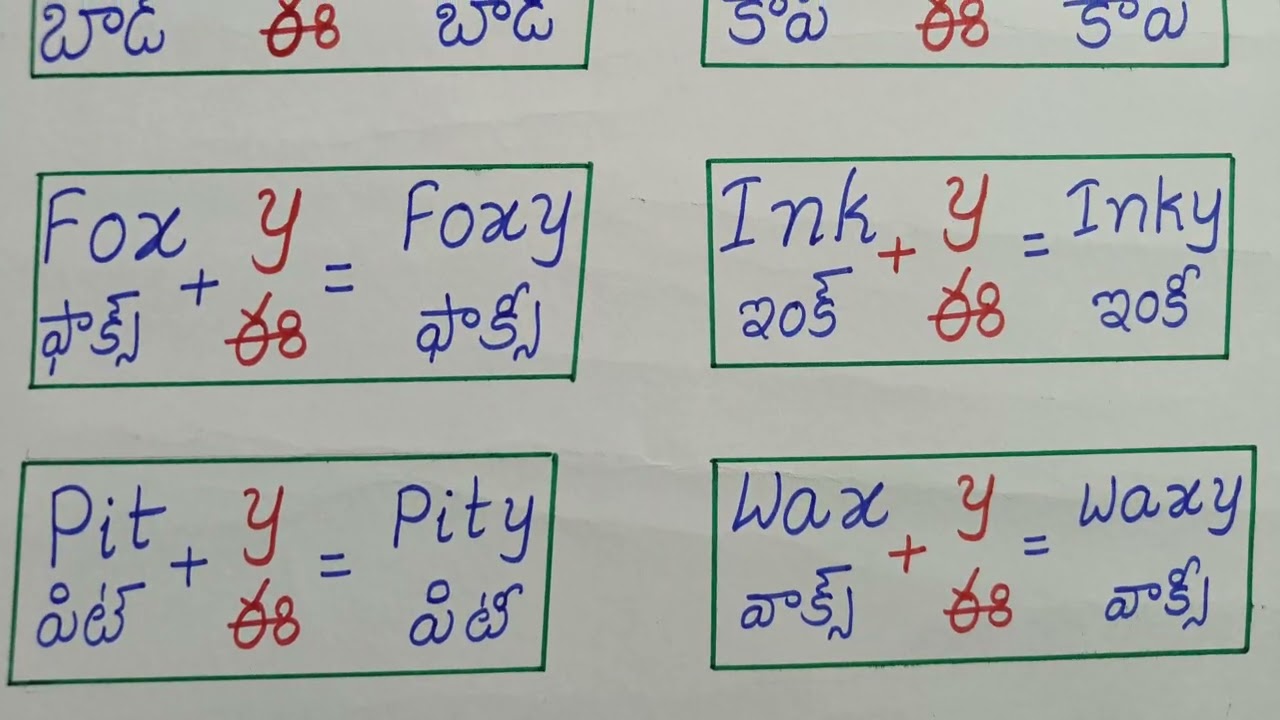 బాడీ ఈ బాడీ
కాపీ ఈ కాపీ
Fox + y = Foxy
ఫాక్స్ ఈ ఫాక్సీ
Ink + y = Inky
ఇంక్ ఈ ఇంకీ
Pit + y = Pity
పిట్ ఈ పిటీ
Wax + y = Waxy
వాక్స్ ఈ వాక్సీ